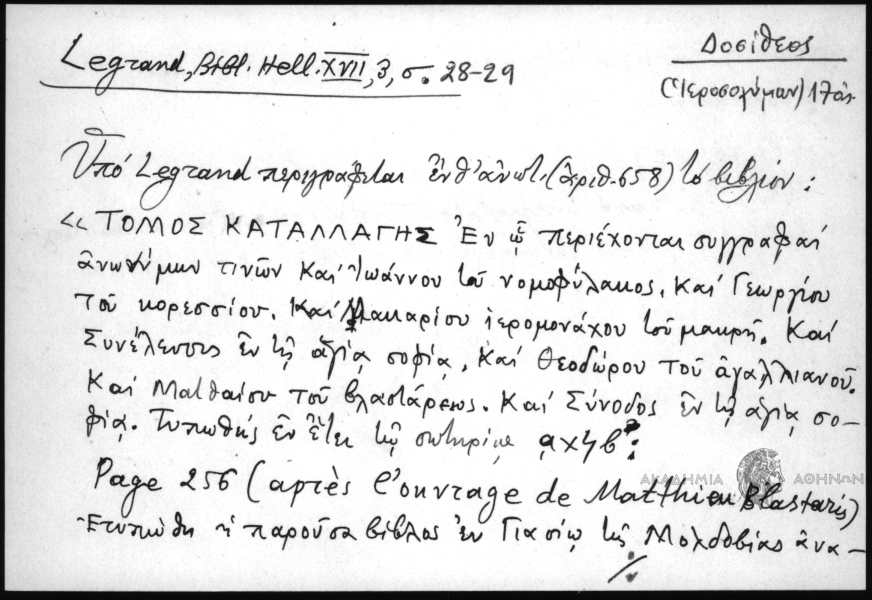 Legrand, Bibl. Hell. XVII, 3, σ. 28-29
Δοσίθεος
(Ἱεροσολύμων) 17ος αι.
Ὑπό Legrand περιγράφεται ἐνθ' ἀνωτ. (ἀριθ. 658) τό βιβλίον:
« ΤΟΜΟΣ ΚΑΤΑΛΛΑΓΗΣ Ἐν ᾧ περιέχονται συγγραφαί
ἀνωνύμων τινῶν καί Ἰωάννου τοῦ νομοφύλακος. Καί Γεωργίου
τοῦ κορεσσίου. Καί Μακαρίου ἱερομονάχου τοῦ μακρῆ. Καί
Συνέλευσις ἐν τῇ ἁγίᾳ σοφίᾳ. Καί Θεοδώρου τοῦ ἀγαλλιανοῦ.
Καί Ματθαίου τοῦ βλαστάρεως. Καί Σύνοδος ἐν τῇ ἁγίᾳ σο-
φίᾳ. Τυπωθείς ἐν ἔτει τῷ σωτηρίῳ αχϟβ':
Page 256 (après l'ouvrage de Matthieu Blastarès)
Ἐτυπώθη ἡ παροῦσα βίβλος ἐν Γιασίῳ τῆς Μολδοβίας ἀνα-
./.
ΑΚΑΔΗΜΙΑ ΑΘΗΝΩΝ